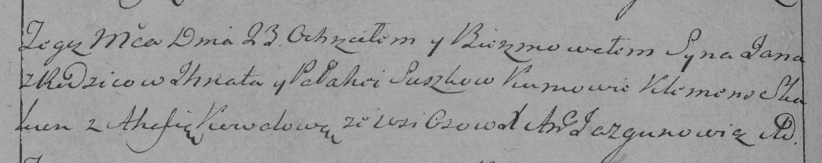 Tegż Mca Dnia 23. Ochrzciłem y Bierzmowałem Syna Jana
z Rodzicow Ihnata y Pałahei Suszkow Kumowie Klemens Ska
kun z Ahafią ze wsi Osowa Jazgunowicz